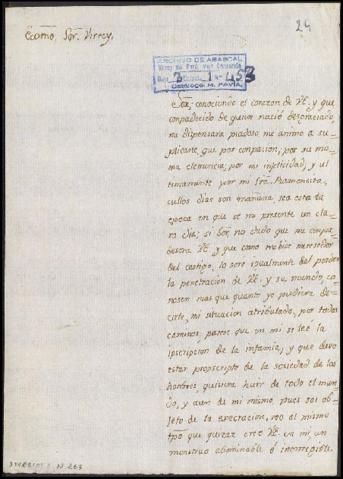 24
Exmo. Sor. Virrey.
ARCHIVO DE ABASCAL
Virrey del Perú
3 1 Nº 453
Catálogo M. PAVÍA
Sor; conociendo el corazon de VE. y que
compadecido de quien nació desgraciado,
me dispensará piadoso me animo a su-
plicarle, que por compasion, por su mis-
ma clemencia; por mi inplicidad, y ul
timamente por mi Sra.
cullos dias son mañana, sea esta la
epoca en que se me presente un cla-
ro dia; si Sor, no dudo que me compa-
descera VE. y que como me hice merecedor
del castigo, lo seré igualmente del perdon
la penetracion de VE. y su mundo, co-
nosen mas que quanto yo pudiera de-
cirle, mi situacion atribulada, por todos
caminos, parece que en mi se lee la
inscripcion de la infamia, y que devo
estar proscripto de la sociedad de los
hombres, quisiera huir de todo el mun-
do, y aun de mi mismo, pues soi ob-
jeto de la execracion, no al mismo
tpo. que quizas cree VE. en mi un
monstruo abominable é incorregible.
DIVERSOS 1 N. 263